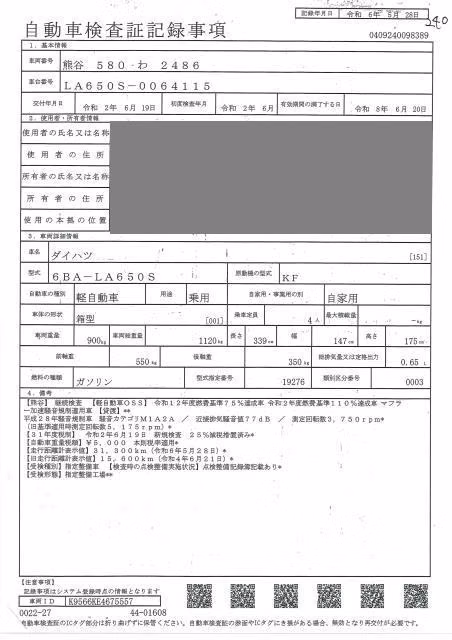 記録年月日 令和 6年 5月 28日
240
自動車検査証記録事項
0409240098389
1. 基本情報
車両番号 熊谷 580 わ 2486
車台番号 LA650S-0064115
交付年月日 令和 2年 6月 19日 初度検査年月 令和 2年 6月 有効期間の満了する日 令和 8年 6月 20日
2. 使用者・所有者情報
使用者の氏名又は名称
使用者の住所
所有者の氏名又は名称
所有者の住所
使用の本拠の位置
3. 車両詳細情報
車名 ダイハツ [151]
型式 6BA-LA650S 原動機の型式 KF
自動車の種別 軽自動車 用途 乗用 自家用・事業用の別 自家用
車体の形状 箱型 [001] 乗車定員 4人 最大積載量 -kg
車両重量 900kg 車両総重量 1120kg 長さ 339cm 幅 147cm 高さ 175cm
前軸重 550kg 後軸重 350kg 総排気量又は定格出力 0.65 L
燃料の種類 ガソリン 型式指定番号 19276 類別区分番号 0003
4. 備考
【熊谷】 継続検査 【軽自動車OSS】 令和12年度燃費基準75%達成車 令和2年度燃費基準110%達成車 マフラ
ー加速騒音規制適用車 【貸渡】**
平成28年騒音規制車 騒音カテゴリM1A2A / 近接排気騒音値77dB / 測定回転数3,750rpm*
(旧基準適用時測定回転数5,175rpm)*
【31年度税別】 令和2年6月19日 新規検査 25%減税措置済み*
【自動車重量税額】¥5,000 本則税率適用*
【走行距離計表示値】31,300km(令和6年5月28日)*
【旧走行距離計表示値】15,600km(令和4年6月21日)*
【受検種別】指定整備車 【検査時の点検整備実施状況】点検整備記録簿記載あり*
【受検形態】指定整備工場**
【注意事項】
記録事項はシステム登録時点の情報となります
車両ID K9566KE4675557
0022-27 44-01608
自動車検査証のICタグ部分は折り曲げずに保管ください。自動車検査証の券面やICタグにき損がある場合、無効となり再交付が必要です。